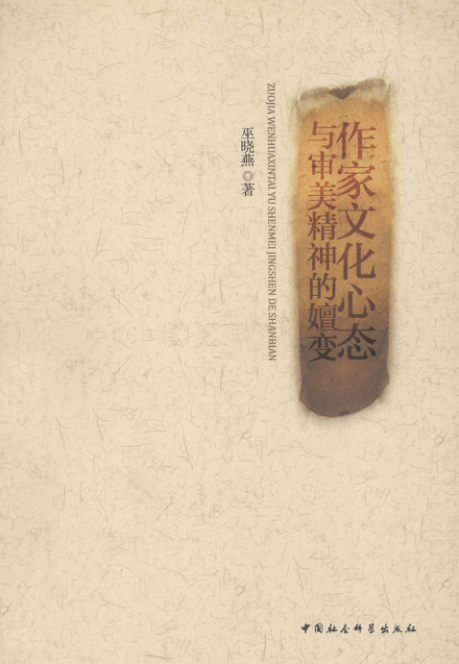 作家文化心态
与审美精神的嬗变
ZUOJIA WENHUAXINTAI YU SHENMEI JINGSHEN DE SHANBIAN
巫晓燕◎著
中国社会科学出版社